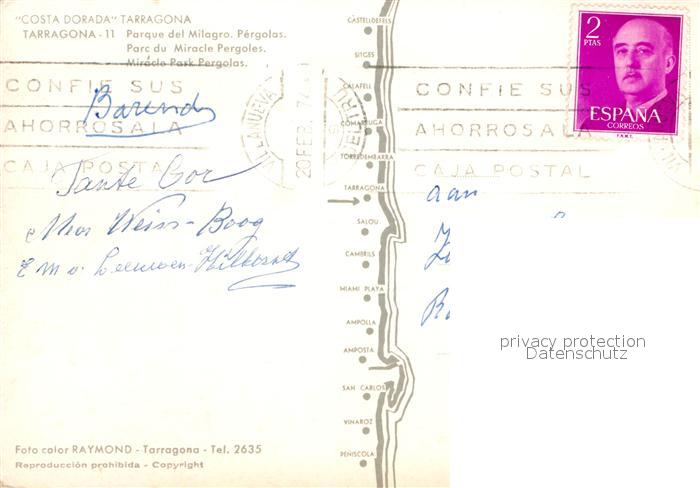 "COSTA DORADA" TARRAGONA
TARRAGONA - 11 Parque del Milagro. Pérgolas.
Parc du Miracle Pergoles.
Miracle Park Pergolas.
CONFIE SUS
AHORROS A LA
CAJA POSTAL
VILLANUEVA
20 FEB. 74
CONFIE SUS
AHORROS A LA
CAJA POSTAL
2
PTAS
ESPAÑA
CORREOS
F.N.M.T.
Barend
Tante Cor
Mevr Weiss-Boog
CASTELLDEFELS
SITGES
CALAFELL
COMARRUGA
TORREDEMBARRA
TARRAGONA
SALOU
CAMBRILS
MIAMI PLAYA
AMPOLLA
AMPOSTA
SAN CARLOS
VINAROZ
PEÑISCOLA
aan
privacy protection
Datenschutz
Foto color RAYMOND - Tarragona - Tel. 2635
Reproducción prohibida - Copyright